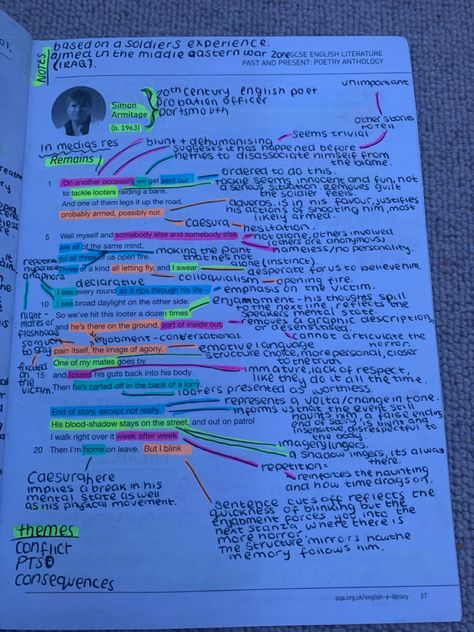 NOTES
based on a soldiers experience.
aimed in the middle eastern war zone
(IRAQ).
GCSE ENGLISH LITERATURE
PAST AND PRESENT: POETRY ANTHOLOGY
unimportant
Simon
Armitage
(b. 1963)
20th century english poet
probation officer
portsmouth
other stories
to tell
In medias res
blunt + dehumanising
seems trivial
suggests it has happened before
he tries to disassociate himself from
the blame
Remains
ordered to do this.
1 On another occasion, we get sent out
to tackle looters raiding a bank.
And one of them legs it up the road,
probably armed, possibly not.
tackle seems innocent and fun, not
a serious situation. removes guilt
the soldier feels
adverbs, is in his favour, justifies
his actions of shooting him, most
likely armed.
caesura
hesitation.
5 Well myself and somebody else and somebody else
are all of the same mind,
so all three of us open fire.
Three of a kind all letting fly, and I swear
not alone, others involved
(others are anonymous)
nameless/no personality.
making the point
that he's not
alone (instinct).
desperate for us to believe him
declarative
colloquialism
opening fire.
I see every round as it rips through his life –
10 I see broad daylight on the other side.
So we've hit this looter a dozen times
and he's there on the ground, sort of inside out,
emphasis on the victim.
enjambment - his thoughts spill
to the next line, reflects the
speakers mental state.
removes a graphic description,
or desensitised.
night-
mares or
flashbacks
enjambment - conversational
cannot articulate the
horror.
pain itself, the image of agony.
One of my mates goes by
15 and tosses his guts back into his body.
Then he's carted off in the back of a lorry.
emotive language
structure choice, more personal, closer
to the truth
immature, lack of respect,
like they do it all the time.
fixated
on
the
victim.
looters presented as worthless.
represents a volta/change in tone.
End of story, except not really.
His blood-shadow stays on the street, and out on patrol
I walk right over it week after week.
20 Then I'm home on leave. But I blink
informs us that the event still
haunting him, a false ending
end of story is blunt and
insensitive, disrespectful to
the body.
imagery lingers.
a shadow lingers, its always
there.
repetition =
reinforces the haunting
and how time drags on.
Caesura here
implies a break in his
mental state as well
as his physical movement.
sentence cuts off reflects the
quickness of blinking but the
enjambment forces you into the
next stanza where there is
more horror.
The structure mirrors how the
memory follows him.
themes
conflict
PTSD
consequences
aqa.org.uk/english-e-library
37